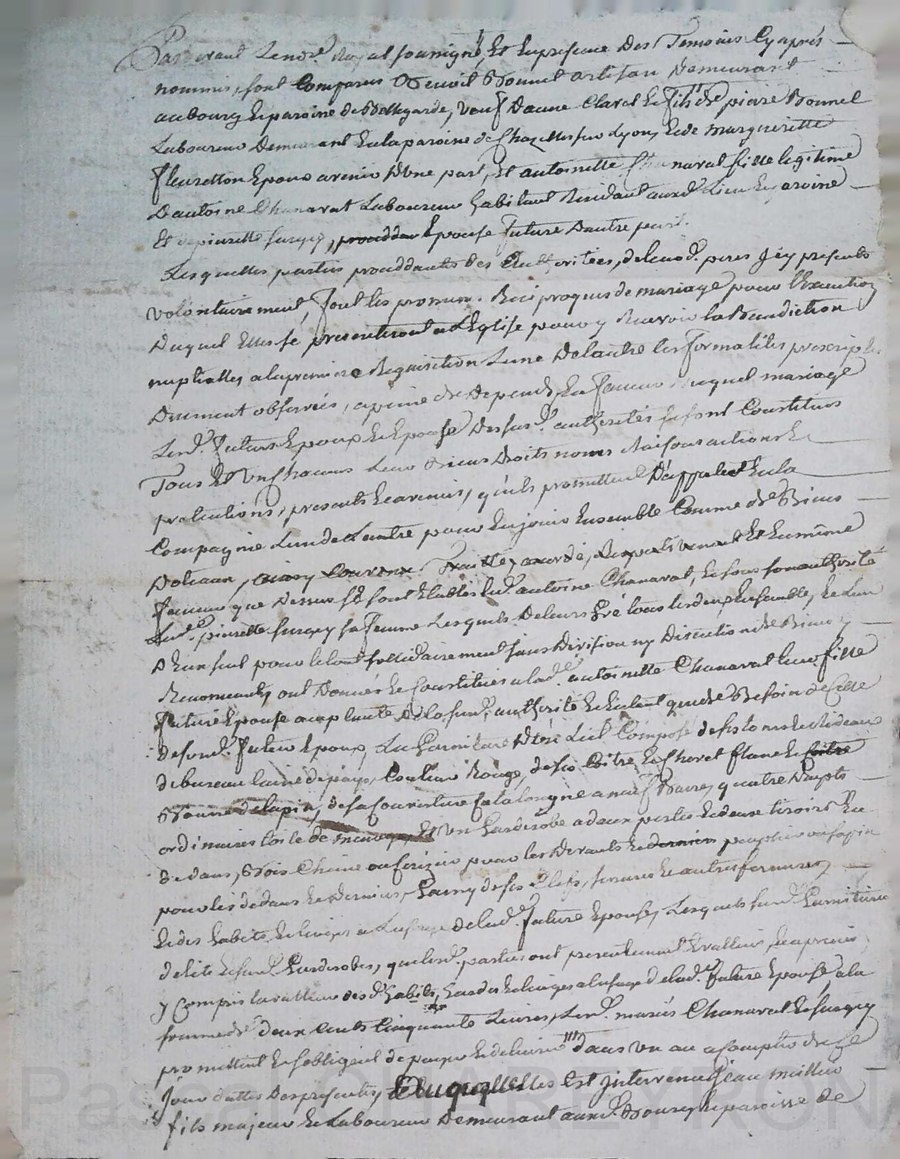 Pardevant Le no.re Royal soussigné, Et En presence Des Temoins Cy après
nommés, sont Comparus Benoit Bonnel artisan Demeurant
au bourg Et paroisse de Bellegarde, veuf Danne Claret Et fils de piere Bonnel
Laboureur Demeurant En la paroisse de Chazelles sur Lyon, Et de Margueritte
fleuretton Epoux avenir D'une part, Et antoinette Chanavat fille legitime
D'antoine Chanavat Laboureur habitant Residant aud. Lieu Et paroisse
Et de pierrette furgy, Epouse future Dautre part.
Lesquelles parties proceddantes des authoritées, de leurs d. peres Icy presents
volontairement, font les promess. Reciproques de mariage pour l'Execution
Duquel Elles se presenteront a L'Eglise pour y Recevoir la Benediction
nuptialle a la premiere Requisition L'une De l'autre les formalités prescriptes
Deument observées, a peine de Depends, En faveur Duquel mariage
Les d. futurs Epoux Et Epouse Des sus d. authorités se sont Constitués
Tous Et un chacuns Leurs Biens Droits noms Raisons actions Et
pretentions, presents Et avenirs, qu'ils promettent D'apporter En la
Compagnie L'un de L'autre pour En jouir Ensemble Comme de Biens
Dotaux, Et En même
faveur que Dessus se sont Etablis led. antoine Chanavat, Et sous son authorité
Lad. pierrette furgy sa femme Lesquels De leurs gré tous les deux Ensemble, Et L'un
D'Eux seul pour le tout sollidairement sans Division ny Discution de Biens y
Renonceants, ont Donnés Et Constitués a lad.e antoinette Chanavat leur fille
future Epouse acceptante De la sus d. authorité Et En tant que de Besoin de Celle
de son d. futur Epoux, La Garniture D'un Lict Composé de ses tours Et Rideaux
de bureau laine de pays, Couleur Rouge, de sa Coitre, Et Chevet flane
Bourre de lapin, de sa Couverture Catalongne a neuf Barres, quatre Draps
ordinaires toile de menage, Et un Garderobe a deux portes Et deux tiroirs En
dedans, Bois Chêne ou Cerizier pour les devants Et peuplier ou sapin
pour les dedans Et Derniers, Garny de ses Clefs, serrures Et autres ferrures,
Et des habits, Et linges a L'usage de lad. future Epouse, Lesquels sus d. Garniture
de lit Et sus d. Garderobes, que les d. parties ont presentement Evalluée, Et appreciés
y Compris la valleur des d. habits, hardes Et linges a l'usage de lad. future Epouse, a la
somme de deux Cents Cinquante Livres, Les d. mariés Chanavat Et furgy
promettent Et s'obligent de payer Et delivrer dans un an a Compter de Ce
Jour datte Des presentes, Auxquelles Est Intervenu Jean
fils majeur Et Laboureur Demeurant aux d. Bourg Et paroisse de